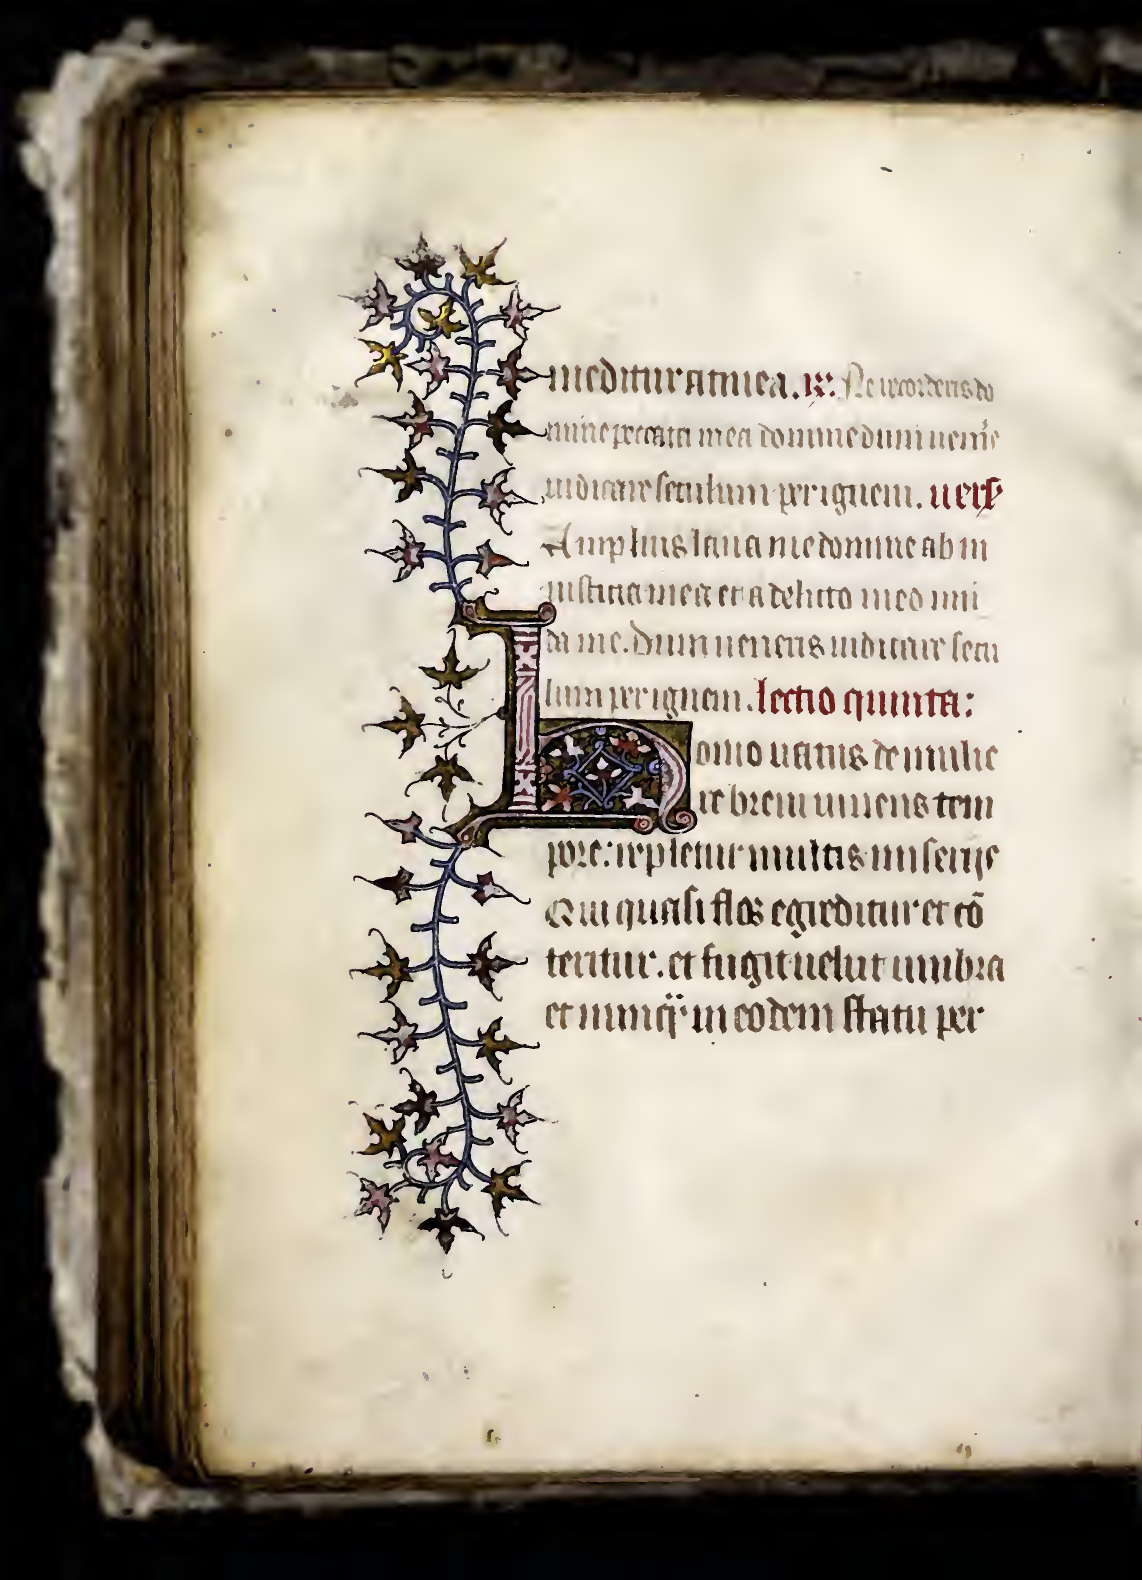 meditur anima mea. R. Ne recorderis do
mine peccata mea domine dum uenis
iudicare seculum per ignem. uers
Amplius laua me domine ab in
iusticia mea et a delicto meo mu
da me. Dum ueneris iudicare secu
lum per ignem. lectio quinta:
homo natus de mulie
re breui uiuens tem
pore: repletur multis miserijs
Qui quasi flos egreditur et cō
teritur. et fugit uelut umbra
et nunq̄ in eodem statu per